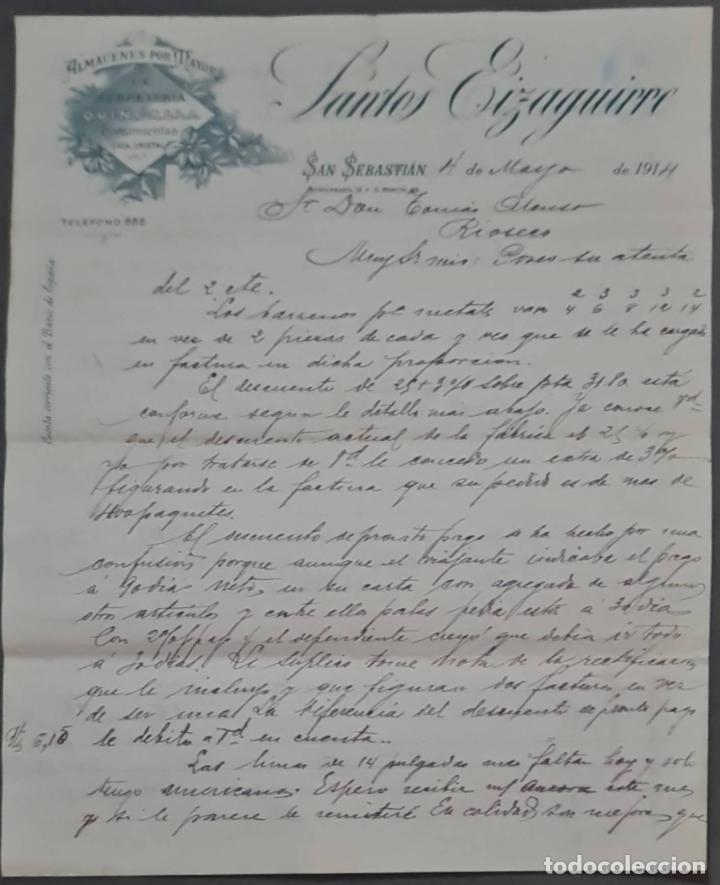 ALMACENES POR MAYOR
DE
FERRETERIA
QUINCALLA
Herramientas
LOZA, CRISTAL
TELÉFONO 555
Santos Eizaguirre
SAN SEBASTIÁN, 4 de Mayo de 1914
Sr. Don Tomás Alonso
Rioseco
Muy Sr mio: Poseo su atenta
del 2 cte.
2 3 3 3 2
Los barrenos pa metale van 4 6 8 12 14
en vez de 2 piezas de cada y veo que se le ha cargado
en factura en dicha proporcion.
El descuento de 25+3% sobre pta 31,80 está
conforme segun le detallo mas abajo. Ya conoce Vd
que el descuento actual de la fábrica es 25% y
yo por tratarse de Vd le concedo un extra de 3%
figurando en la factura que su pedido es de mas de
paquetes.
El descuento de pronto pago se ha hecho por una
confusión porque aunque el viajante indicaba el pago
á 90 dias neto, en su carta con agregado de algunos
otros articulos y entre ellos palas pedia está á 30 dias
Con 2% p pago y el dependiente creyó que debia ir todo
á 30 dias. Le suplico tome nota de la rectificacion
que le incluyo y que figuran dos facturas en vez
de ser una. La diferencia del descuento de pronto pago
Pts 5,15 le debito a Vd en cuenta..
Las limas de 14 pulgadas me faltan hoy y solo
tengo americanas. Espero recibir este mes
y si le parece le remitiré. En calidad son mejores que
Cuenta corriente con el Banco de España
todocoleccion
todocoleccion.net